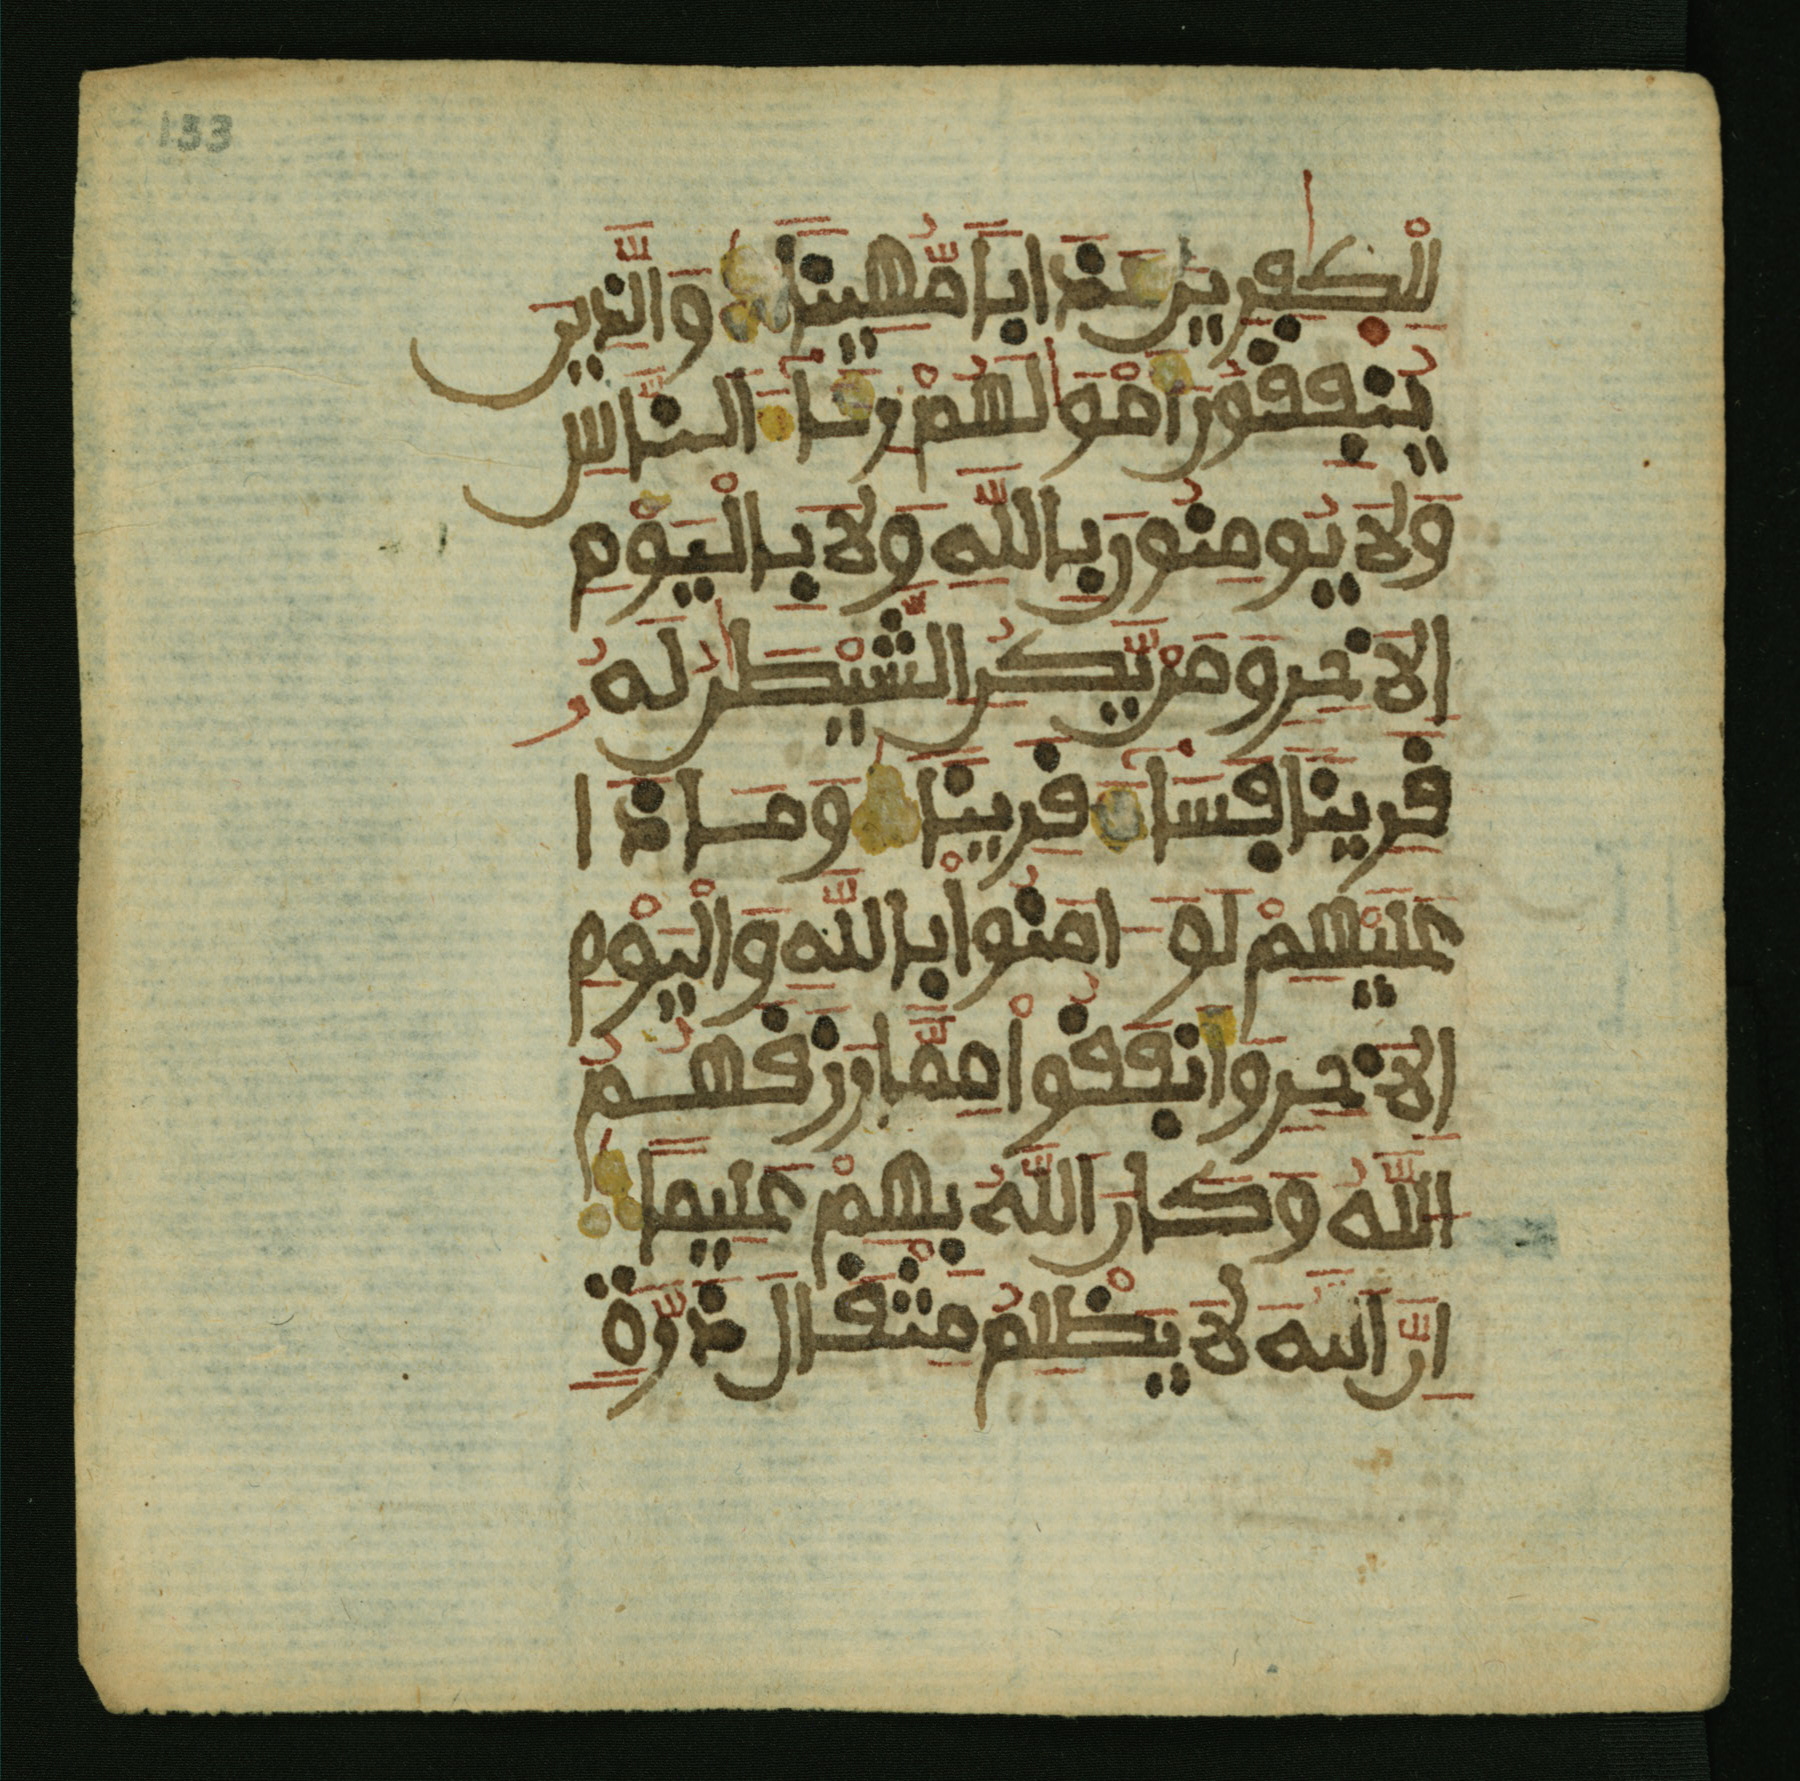 133
لِلْكٰفِرِينَ عَذَابًا مُّهِينًا وَالَّذِينَ
يُنفِقُونَ أَمْوَٰلَهُمْ رِئَآءَ النَّاسِ
وَلَا يُومِنُونَ بِاللَّهِ وَلَا بِالْيَوْمِ
الَاخِرِ وَمَنْ يَّكُنِ الشَّيْطَٰنُ لَهُۥ
قَرِينًا فَسَآءَ قَرِينًا وَمَاذَا
عَلَيْهِمْ لَوَ اٰمَنُواْ بِاللَّهِ وَالْيَوْمِ
الَاخِرِ وَأَنفَقُواْ مِمَّا رَزَقَهُمُ
اللَّهُ وَكَانَ اللَّهُ بِهِمْ عَلِيمًا
إِنَّ اللَّهَ لَا يَظْلِمُ مِثْقَالَ ذَرَّةٍ